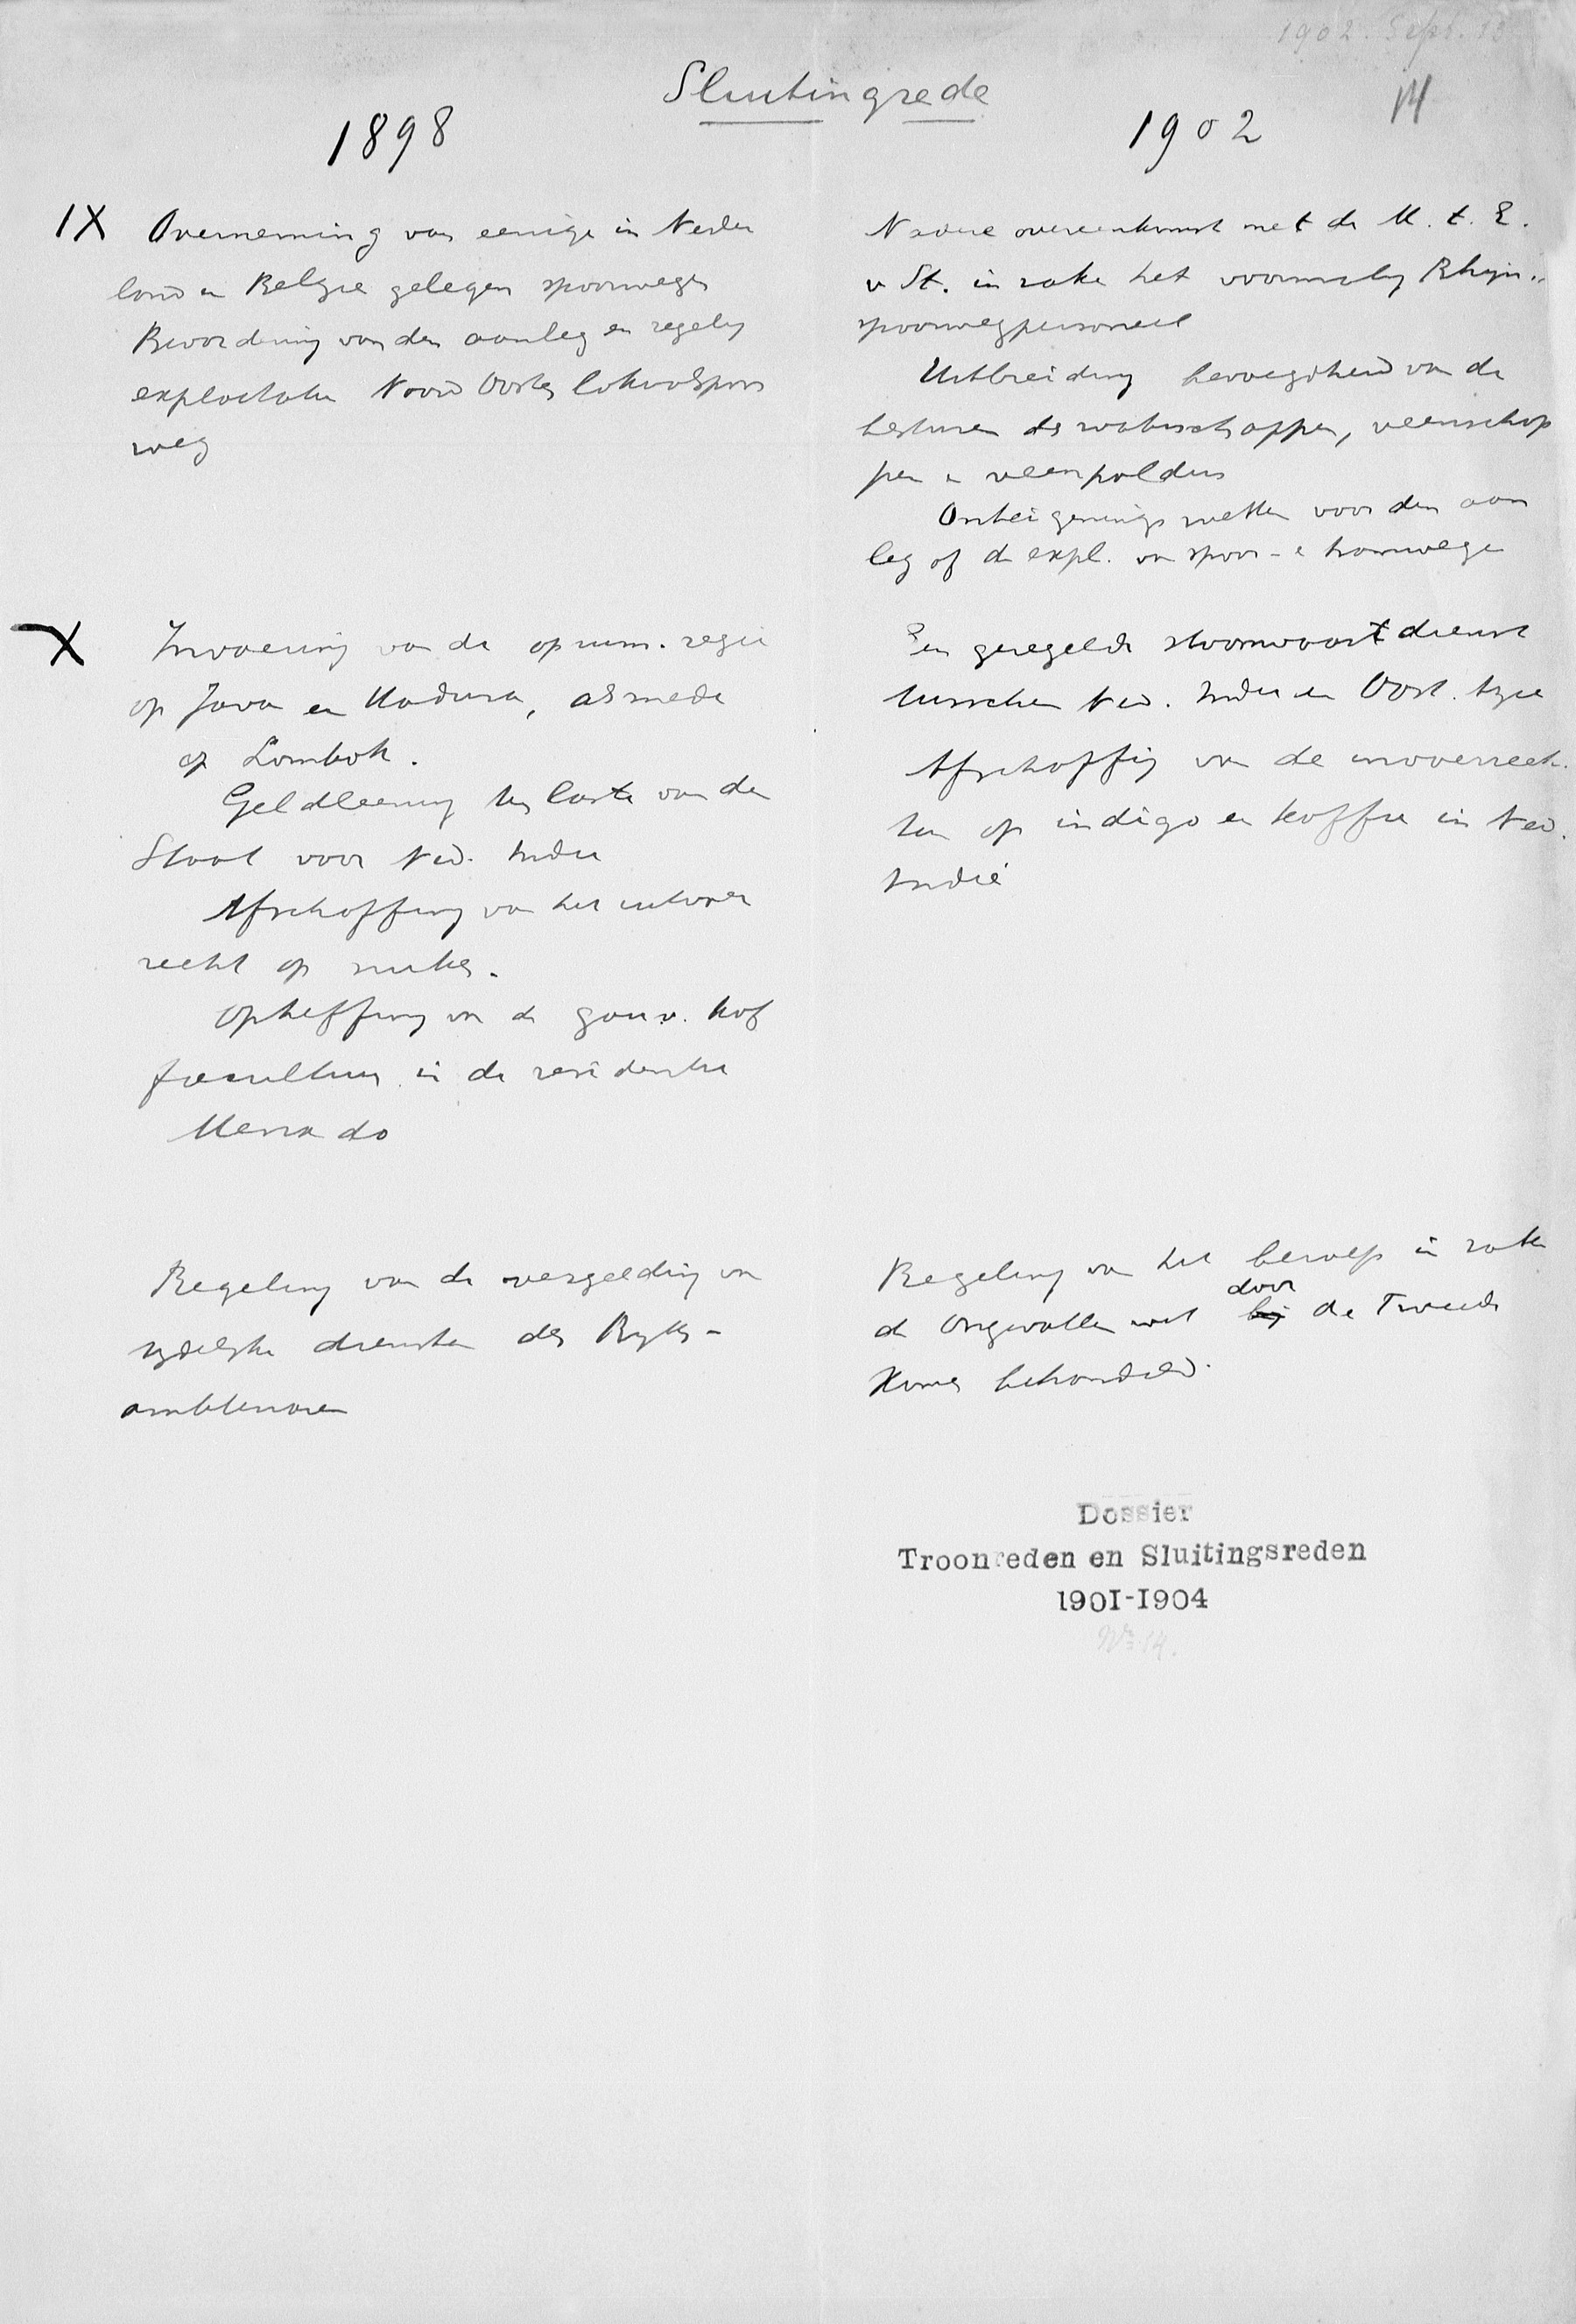 1902. Sept. 13
14
Sluitingrede
1898
IX Overneming van eenige in Neder
land en Belgie gelegen spoorwegen
Bevordering van den aanleg en regeling
exploitatie Noord Ooster lokaalspoor
weg
X Invoering van de opium. regie
op Java en Madura, alsmede
op Lombok.
Geldleening ten laste van den
Staat voor Ned. Indie
Afschaffing van het uitvoer
recht op suiker.
Opheffing van de gouv. kof
fiecultuur in de residentie
Menado
Regeling van de vergelding van
tydelyke diensten der Ryks-
ambtenaren
1902
Nadere overeenkomst met de M. t. E.
v St. in zake het voormalig Rhijn-
spoorwegpersoneel
Uitbreiding bevoegdheid van de
besturen der waterschappen, veenschap
pen en veenpolders
Onteigenings wetten voor den aan
leg of de expl. van spoor- en tramwegen
Een geregelde stoomvaart dienst
tusschen Ned. Indie en Oost. Azie
Afschaffing van de invoerrech-
ten op indigo en koffie in Ned.
Indië
Regeling van het beroep in zake
door
de Ongevallen wet bij de Tweede
Kamer behandeld.
Dossier
Troonreden en Sluitingsreden
1901-1904
No 14.